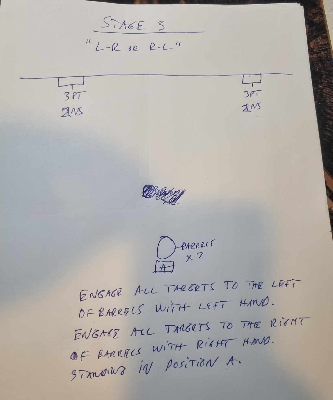 STAGE 5
"L-R OR R-L"
3PT 3PT
2NS 2NS
BARRELS
x 2
A
ENGAGE ALL TARGETS TO THE LEFT
OF BARRELS WITH LEFT HAND.
ENGAGE ALL TARGETS TO THE RIGHT
OF BARRELS WITH RIGHT HAND.
STANDING IN POSITION A.